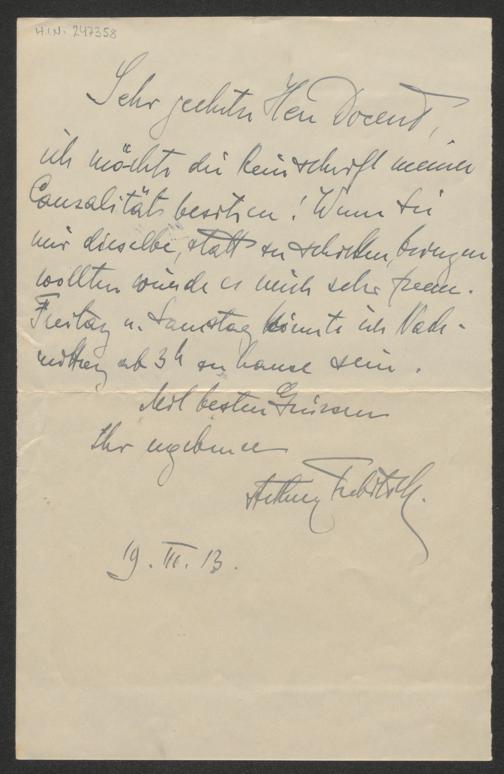 H.I.N. 247358
Sehr geehrter Herr Docent,
ich möchte die Reinschrift meiner
Causalität besitzen! Wenn Sie
mir dieselbe, statt zu schicken, bringen
wollten würde es mich sehr freuen.
Freitag u. Samstag könnte ich Nach-
mittag ab 3h zu hause sein.
Mit besten Grüssen
Ihr ergebener
Arthur Trebitsch.
19. III. 13.